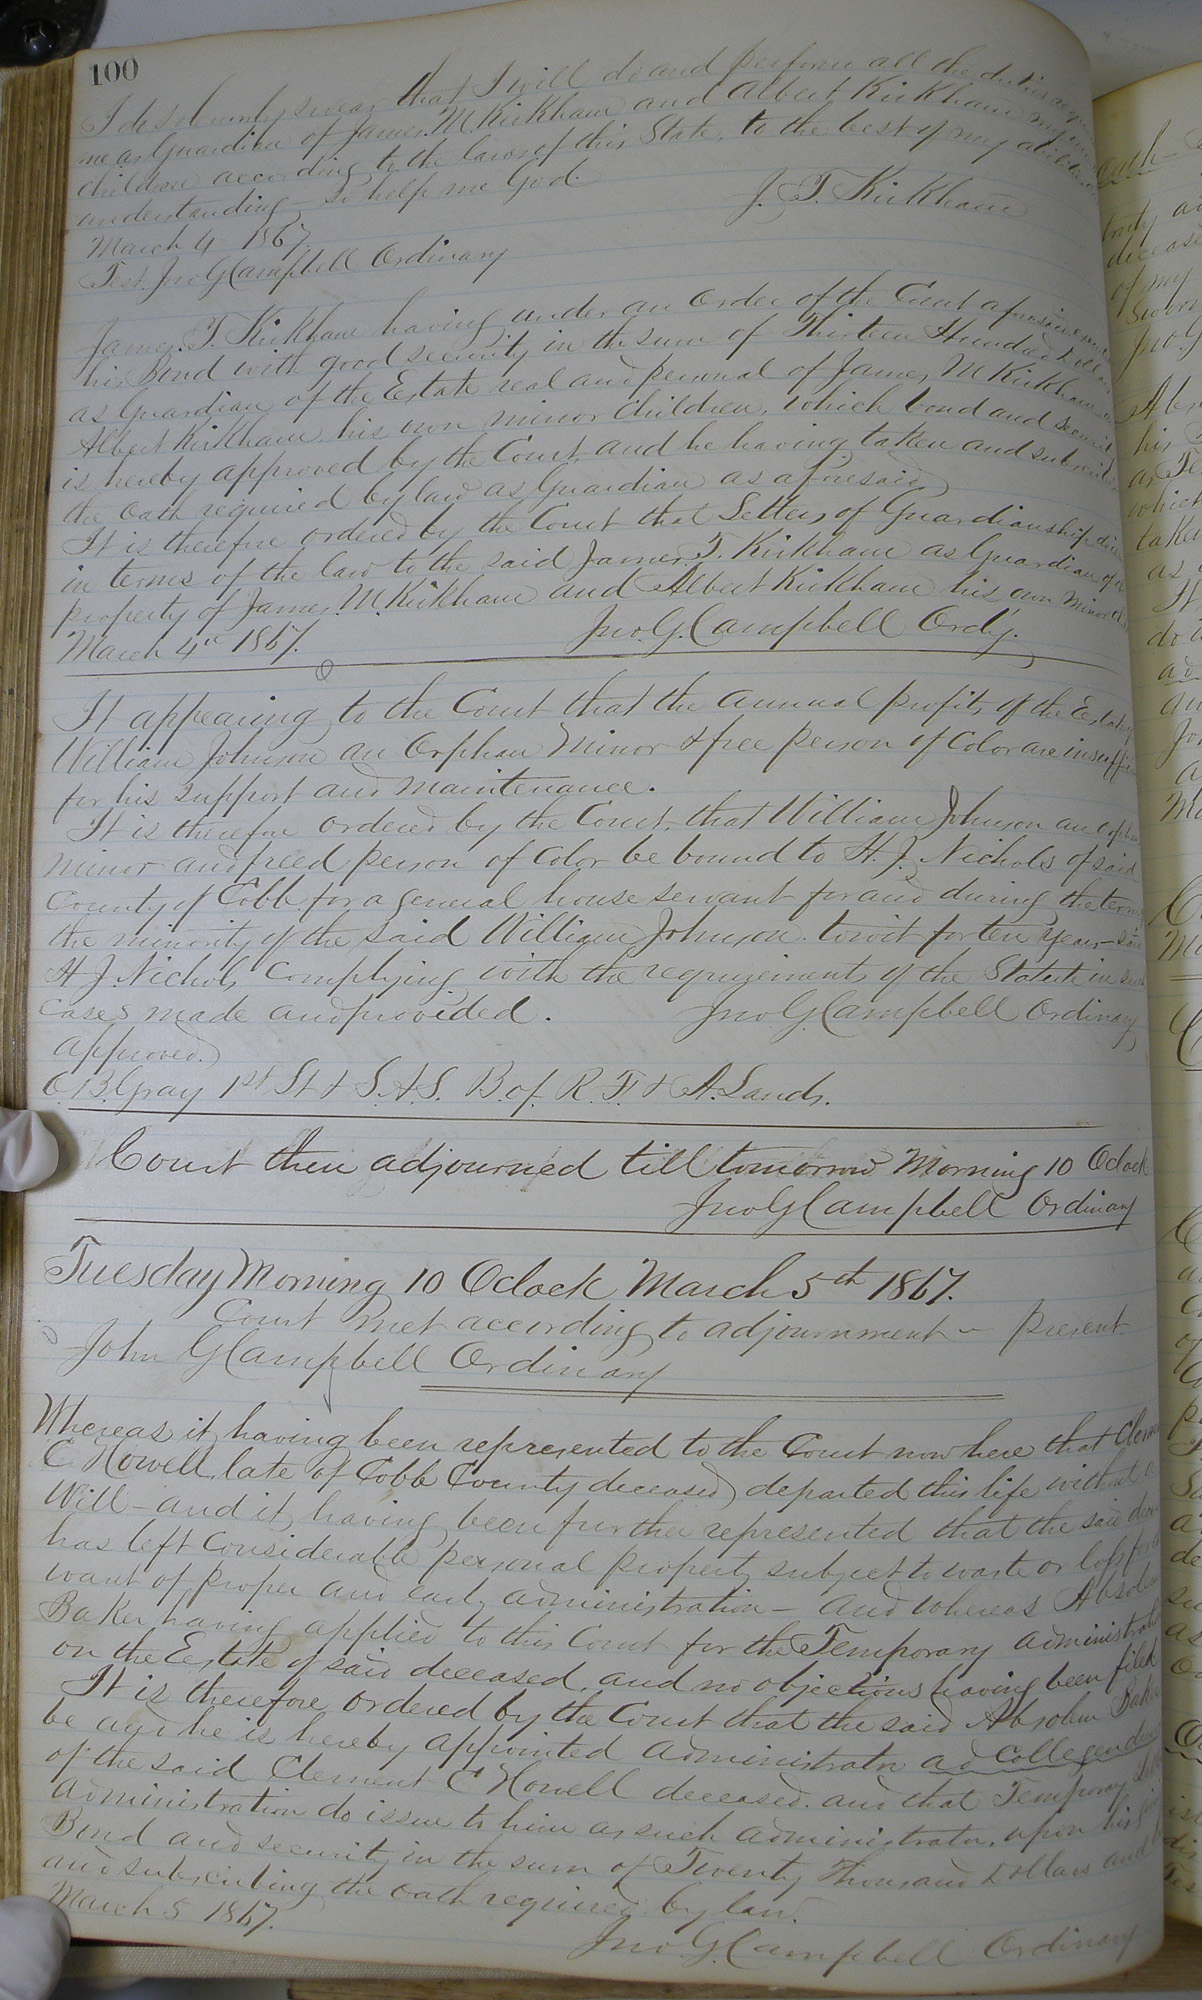 100
I do solemnly swear that I will do and perform all the duties
me as Guardian of James M. Kirkham and Albert Kirkham my
children according to the laws of this State, to the best of my
understanding – So help me God.
J. T. Kirkham
March 4 1867.
Test. Jno G Campbell Ordinary
James T. Kirkham having under an order of the Court aforesaid
his Bond with good security in the sum of Thirteen Hundred
as Guardian of the Estate real and personal of James M Kirkham
Albert Kirkham, his own minor children, which bond and
is hereby approved by the Court, and he having taken and
the oath required by law as Guardian as aforesaid
It is therefore ordered by the Court that Letters of Guardianship
in terms of the law to the said James T. Kirkham as Guardian of
property of James M. Kirkham and Albert Kirkham his own minor
March 4th 1867. Jno. G. Campbell Ordy.
It appearing to the Court that the annual profits of the Estate
William Johnson an Orphan Minor & free person of Color are
for his support and maintenance.
It is therefore ordered by the Court, that William Johnson an
minor and freed person of Color be bound to H. J. Nichols of said
County of Cobb for a general house servant for and during the term
the minority of the said William Johnson. towit for ten years – said
H J. Nichols complying with the requirements of the Statute in such
cases made and provided. Jno G. Campbell Ordinary
approved.)
C. B. Gray 1st Lt & S. A. S. B. of R. F. & A. Lands.
Court then adjourned till tomorrow Morning 10 Oclock
Jno G Campbell Ordinary
Tuesday Morning 10 Oclock March 5th 1867.
Court met according to adjournment – present
John G Campbell Ordinary
Whereas it having been represented to the Court now here that
C Howell, late of Cobb County deceased) departed this life without
Will – and it having been further represented that the said
has left considerable personal property subject to waste or loss for
want of proper and early administration – and whereas Absolom
Baker having applied to this Court for the Temporary administration
on the Estate of said deceased, and no objections having been filed
It is therefore ordered by the Court that the said Absolom Baker
be and he is hereby appointed administrator ad Collegendum
of the said Clement C Howell deceased. and that Temporary
administration do issue to him as such administrator, upon his
Bond and security in the sum of Twenty Thousand Dollars and
and subscribing the oath required by law.
March 5 1867.
Jno. G. Campbell Ordinary